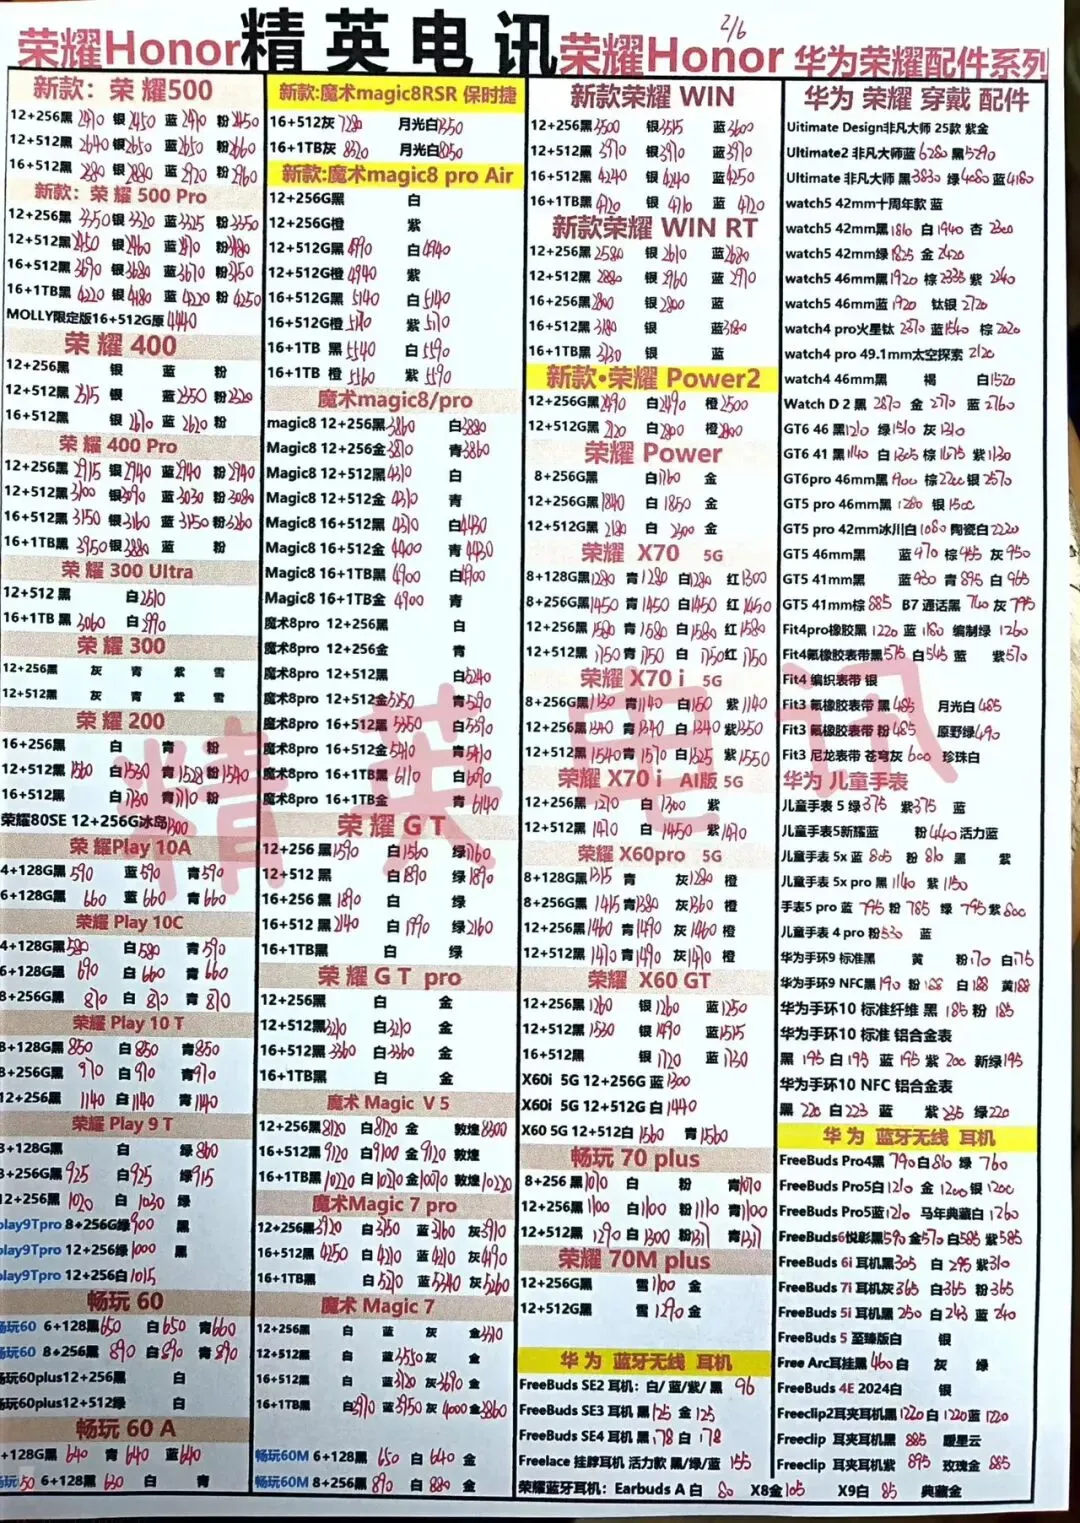 荣耀Honor 精英电讯 荣耀Honor 华为荣耀配件系列
2/6
新款：荣耀500
12+256黑 银2450 蓝 粉2450
12+512黑2640 银2650 蓝2650 粉2660
16+512黑 银 蓝2920 粉2960
新款：荣耀 500 Pro
12+256黑3350 银3320 蓝3325 粉3350
12+512黑 银 蓝 粉
16+512黑3690 银3680 蓝3670 粉
16+1TB黑4220 银4180 蓝4220 粉4250
MOLLY限定版16+512G原4440
荣耀400
12+256黑 银 蓝 粉
12+512黑 银 蓝 粉
16+512黑 银 蓝2620 粉
荣耀 400 Pro
12+256黑2915 银2940 蓝2940 粉2940
12+512黑3100 银3090 蓝3030 粉3080
16+512黑3150 银3160 蓝3150 粉
16+1TB黑3950 银 蓝 粉
荣耀 300 Ultra
12+512 黑 白
16+1TB 黑3060 白
荣耀 300
12+256黑 灰 青 紫 雪
12+512黑 灰 青 紫 雪
荣耀 200
16+256黑 白 青 粉
12+512黑1560 白1530 青1528 粉1540
16+512黑 白 青 粉
荣耀80SE 12+256G冰岛
荣耀Play 10A
4+128G黑590 蓝590 青590
6+128G黑 660 蓝660 青660
荣耀 Play 10C
4+128G黑580 白580 青590
6+128G黑 690 白660 青660
8+256G黑 810 白810 青810
荣耀 Play 10 T
8+128G黑850 白850 青850
8+256G黑 白 青
12+256黑 1140 白1140 青1140
荣耀 Play 9 T
8+128G黑 白 绿860
8+256G黑925 白925 绿915
12+256黑 1020 白1030 绿
play9Tpro 8+256G绿900 黑
play9Tpro 12+256绿1000 黑
play9Tpro 12+256白1015
畅玩 60
畅玩60 6+128黑650 白650 青660
畅玩60 8+256黑 890 白890 青890
畅玩60plus12+256黑 白
畅玩60plus12+512绿 白
畅玩 60 A
+128G黑 640 青640 蓝640
畅玩50 6+128黑 630 白 青
新款:魔术magic8RSR 保时捷
16+512灰 7280 月光白
16+1TB灰 8320 月光白
新款:魔术magic8 pro Air
12+256G黑 白
12+256G橙 紫
12+512G黑 白4940
12+512G橙4940 紫
16+512G黑 5140 白5140
16+512G橙 紫
16+1TB 黑5540 白5590
16+1TB 橙 5560 紫5590
魔术magic8/pro
magic8 12+256黑3860 白3880
Magic8 12+256金 青3860
Magic8 12+512黑 白
Magic8 12+512金 青
Magic8 16+512黑 白4430
Magic8 16+512金4400 青4430
Magic8 16+1TB黑4900 白4900
Magic8 16+1TB金 4900 青
魔术8pro 12+256黑 白
魔术8pro 12+256金 青
魔术8pro 12+512黑 白5240
魔术8pro 12+512金5250 青5290
魔术8pro 16+512黑 白5390
魔术8pro 16+512金 青
魔术8pro 16+1TB黑6110 白6090
魔术8pro 16+1TB金 青6140
荣耀GT
12+256 黑1590 白1560 绿
12+512 黑 白1890 绿1890
16+256 黑1890 白 绿
16+512 黑2140 白 绿2160
16+1TB黑 白 绿
荣耀GT pro
12+256黑 白 金
12+512黑3210 白3210 金
16+512黑3360 白3360 金
16+1TB黑 白 金
魔术 Magic V 5
12+256黑8120 白8120 金 敦煌8300
16+512黑9120 白9100 金9120 敦煌
16+1TB黑10220 白10210 金10070 敦煌10220
魔术Magic 7 pro
12+256黑 白 蓝 灰
16+512黑4250 白4210 蓝4210 灰4190
16+1TB黑 白5210 蓝 灰5260
魔术 Magic 7
12+256黑 白 蓝 灰 金
12+512黑 白 蓝 灰 金
16+512黑 白 蓝 灰 金
16+1TB黑 白 蓝3950 灰4000 金3860
畅玩60M 6+128黑 650 白640 金
畅玩60M 8+256黑 890 白880 金
新款荣耀 WIN
12+256黑3500 银3515 蓝3600
12+512黑3970 银3970 蓝3970
16+512黑4240 银4240 蓝4250
16+1TB黑4720 银4710 蓝4720
新款荣耀 WIN RT
12+256黑2580 银2610 蓝2680
12+512黑2880 银2960 蓝2970
16+256黑2800 银2800 蓝
16+512黑3180 银 蓝3180
16+1TB黑 银 蓝
新款•荣耀 Power2
12+256G黑2490 白2490 橙2500
12+512G黑 白2800 橙2800
荣耀 Power
8+256G黑 白1760 金
12+256G黑1840 白1850 金
12+512G黑2180 白2300 金
荣耀 X70 5G
8+128G黑1280 青1280 白1280 红1300
8+256G黑1450 青1450 白1450 红1450
12+256黑1580 青1580 白1580 红1580
12+512黑1750 青1750 白1750 红1750
荣耀 X70 i 5G
8+256G黑1130 青1140 白1150 紫1140
12+256黑1340 青1340 白1340 紫1350
12+512黑1540 青1570 白 紫1550
荣耀 X70 i AI版 5G
12+256黑1270 白1300 紫
12+512黑1470 白1450 紫1470
荣耀 X60pro 5G
8+128G黑1315 青 灰1280 橙
8+256G黑1415 青1380 灰1360 橙
12+256黑1460 青1490 灰1460 橙
12+512黑1470 青1490 灰1470 橙
荣耀 X60 GT
12+256黑1260 银1260 蓝1250
12+512黑1530 银1490 蓝1515
16+512黑 银1720 蓝1730
X60i 5G 12+256G 蓝1300
X60i 5G 12+512G 白1440
X60 5G 12+512白 1560 青1560
畅玩 70 plus
8+256 黑1010 白 粉 青1010
12+256黑1100 白1100 粉1110 青1100
12+512黑1290 白1300 粉 青
荣耀 70M plus
12+256G黑 雪1100 金
12+512G黑 雪1290 金
华为 蓝牙无线 耳机
FreeBuds SE2 耳机：白/蓝/紫/黑 96
FreeBuds SE3 耳机 黑125 金125
FreeBuds SE4 耳机 黑178 白178
Freelace 挂脖耳机 活力款 黑/绿/蓝 155
荣耀蓝牙耳机：Earbuds A 白 80 X8金105 X9白 85 典藏金
华为 荣耀 穿戴 配件
Uitimate Design非凡大师 25款 紫金
Ultimate2 非凡大师蓝6280 黑5290
Ultimate 非凡大师 黑3830 绿4080 蓝4180
watch5 42mm十周年款 蓝
watch5 42mm黑1860 白1940 杏2300
watch5 42mm绿1825 金2420
watch5 46mm黑1920 棕2335 紫2240
watch5 46mm蓝1920 钛银2720
watch4 pro火星钛 2370 蓝1540 棕2020
watch4 pro 49.1mm太空探索 2120
watch4 46mm黑 褐 白1520
Watch D 2 黑 2870 金 2770 蓝2760
GT6 46 黑1210 绿1510 灰1310
GT6 41 黑1140 白1305 棕1675 紫1130
GT6pro 46mm黑1900 棕2200 银2570
GT5 pro 46mm黑1280 银1500
GT5 pro 42mm冰川白1080 陶瓷白2220
GT5 46mm黑 蓝970 棕955 灰950
GT5 41mm黑 蓝930 青895 白965
GT5 41mm棕 885 B7 通话黑 760 灰795
Fit4pro橡胶黑1220 蓝1180 编制绿 1260
Fit4氟橡胶表带黑575 白565 蓝 紫570
Fit4 编织表带 银
Fit3 氟橡胶表带 黑485 月光白485
Fit3 氟橡胶表带 粉485 原野绿490
Fit3 尼龙表带 苍穹灰600 珍珠白
华为 儿童手表
儿童手表 5 绿375 紫375 蓝
儿童手表5新耀蓝 粉440 活力蓝
儿童手表 5x 蓝805 粉810 黑 紫
儿童手表 5x pro 黑1140 紫1150
手表5 pro 蓝795 粉785 绿795 紫800
儿童手表 4 pro 粉530 蓝
华为手环9 标准黑 黄 粉170 白175
华为手环9 NFC黑190 粉188 白188 黄188
华为手环10 标准纤维 黑185 粉185
华为手环10 标准 铝合金表
黑195 白195 蓝195 紫200 新绿195
华为手环10 NFC 铝合金表
黑220 白223 蓝 紫235 绿220
华为 蓝牙无线 耳机
FreeBuds Pro4黑 790 白810 绿 760
FreeBuds Pro5白1210 金1200 银1200
FreeBuds Pro5蓝1210 马年典藏白1260
FreeBuds6悦彰黑590 金570 白585 紫585
FreeBuds 6i 耳机黑305 白295 紫310
FreeBuds 7i 耳机灰365 白365 粉365
FreeBuds 5i 耳机黑250 白243 蓝240
FreeBuds 5 至臻版白 银
Free Arc耳挂黑460 白 灰 绿
FreeBuds 4E 2024白 银
Freeclip2耳夹耳机黑1220 白1220 蓝1220
Freeclip 耳夹耳机黑 885 暖星云
Freeclip 耳夹耳机紫 895 玫瑰金 885
精英电讯